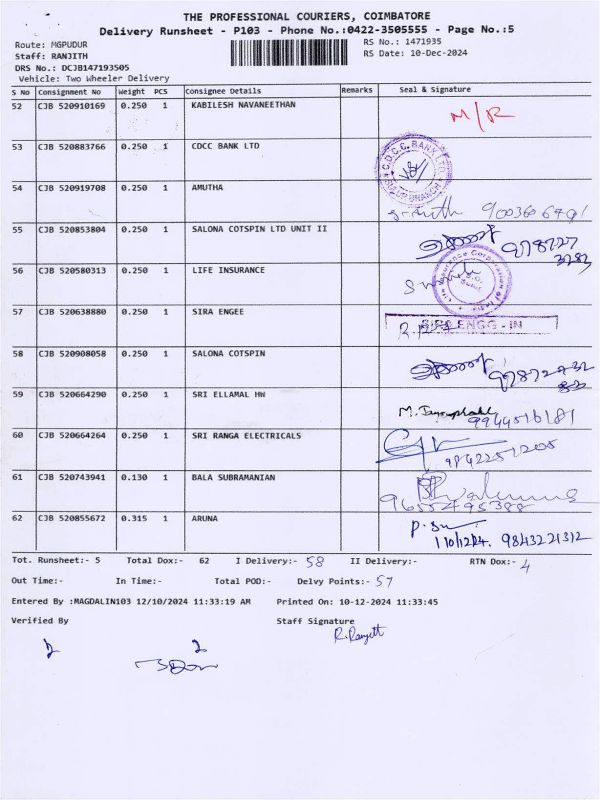 THE PROFESSIONAL COURIERS, COIMBATORE
Delivery Runsheet - P103 - Phone No.:0422-3505555 - Page No.:5
Route: MGPUDUR RS No.: 1471935
Staff: RANJITH RS Date: 10-Dec-2024
DRS No.: DCJB147193505
Vehicle: Two Wheeler Delivery
S No Consignment No Weight PCS Consignee Details Remarks Seal & Signature
52 CJB 520910169 0.250 1 KABILESH NAVANEETHAN M/R
53 CJB 520883766 0.250 1 CDCC BANK LTD C.D.C.C. BANK LTD. BRANCH
54 CJB 520919708 0.250 1 AMUTHA 9003606791
55 CJB 520853804 0.250 1 SALONA COTSPIN LTD UNIT II
56 CJB 520580313 0.250 1 LIFE INSURANCE Life Insurance Corporation of India
57 CJB 520638880 0.250 1 SIRA ENGEE ENGG - IN
58 CJB 520908058 0.250 1 SALONA COTSPIN
59 CJB 520664290 0.250 1 SRI ELLAMAL HW 9944516181
60 CJB 520664264 0.250 1 SRI RANGA ELECTRICALS 9842251205
61 CJB 520743941 0.130 1 BALA SUBRAMANIAN 9655495388
62 CJB 520855672 0.315 1 ARUNA 9843221312
Tot. Runsheet:- 5 Total Dox:- 62 I Delivery:- 58 II Delivery:- RTN Dox:- 4
Out Time:- In Time:- Total POD:- Delvy Points:- 57
Entered By :MAGDALIN103 12/10/2024 11:33:19 AM Printed On: 10-12-2024 11:33:45
Verified By Staff Signature
R. Ranjith